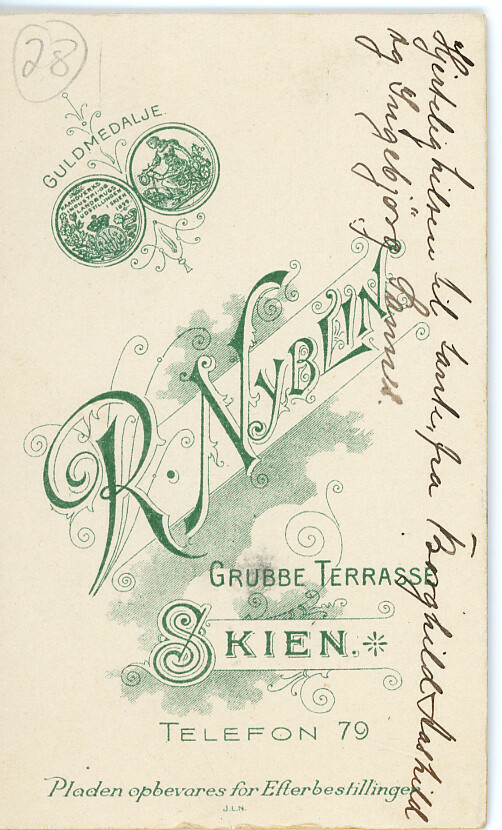 28
GULDMEDALJE.
R. NYBLIN
GRUBBE TERRASSE
SKIEN.
TELEFON 79
Pladen opbevares for Efterbestillinger
J.L.N.
Hjertelig hilsen til tante, fra Borghild, Aashild
og Ingebjörg